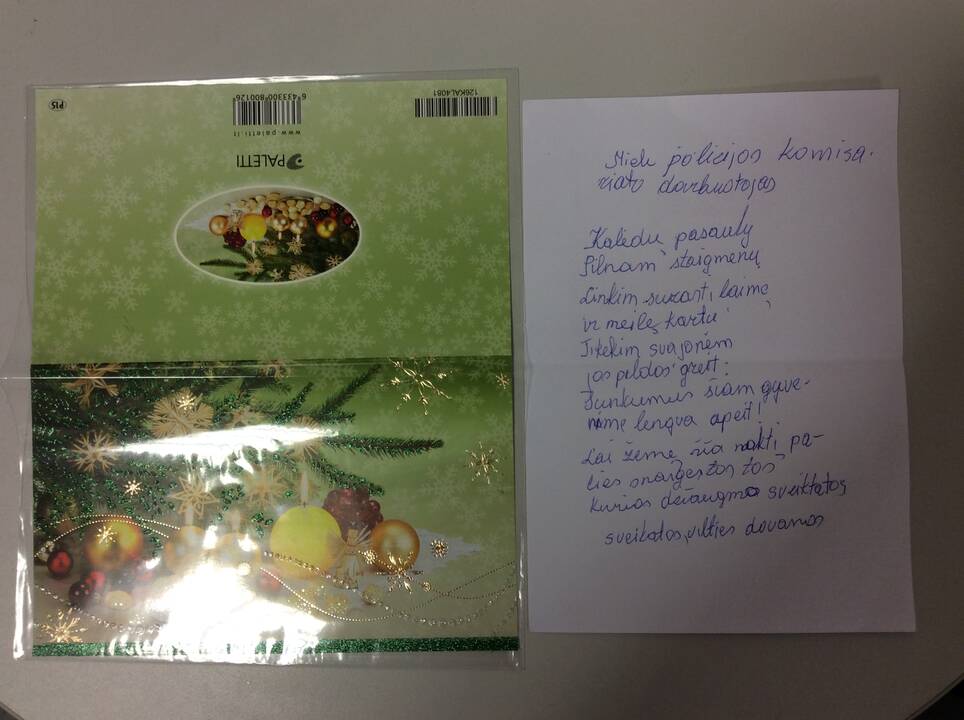 P15
6 433300 800126
126KAL4081
www.paletti.lt
PALETTI
Miele policijos komisa-
riato darbuotojas
Kalėdų pasauly
Pilnam staigmenų
Linkim surast, laimę
ir meilę kartu
Tikėkim svajonėm
jos pildos greit.
Sunkumus šiam gyve-
nime lengva apeit!
Lai žemę šią naktį pa-
lies snaigės tos
Kurios džiaugmo sveiktatos
sveikatos, vilties dovanos